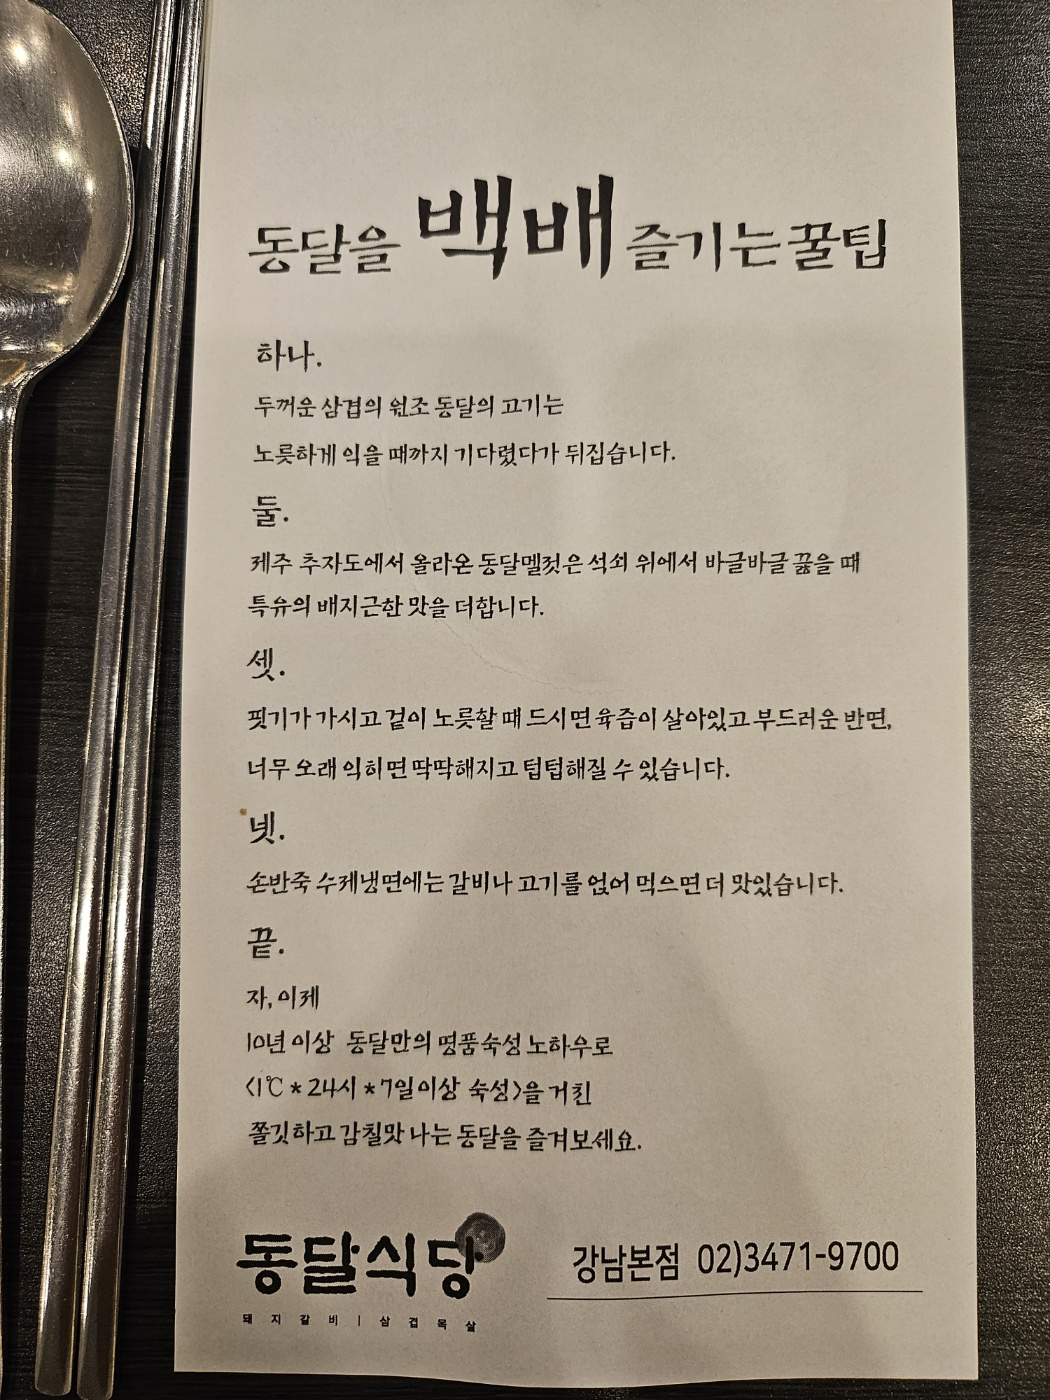 동달을 백배 즐기는 꿀팁
하나.
두꺼운 삼겹의 원조 동달의 고기는
노릇하게 익을 때까지 기다렸다가 뒤집습니다.
둘.
제주 추자도에서 올라온 동달멜젓은 석쇠 위에서 바글바글 끓을 때
특유의 배지근한 맛을 더합니다.
셋.
핏기가 가시고 겉이 노릇할 때 드시면 육즙이 살아있고 부드러운 반면,
너무 오래 익히면 딱딱해지고 텁텁해질 수 있습니다.
넷.
손반죽 수제냉면에는 갈비나 고기를 얹어 먹으면 더 맛있습니다.
끝.
자, 이제
10년 이상 동달만의 명품숙성 노하우로
<1℃ * 24시 * 7일이상 숙성>을 거친
쫄깃하고 감칠맛 나는 동달을 즐겨보세요.
동달식당
돼지갈비 | 삼겹목살
강남본점 02)3471-9700